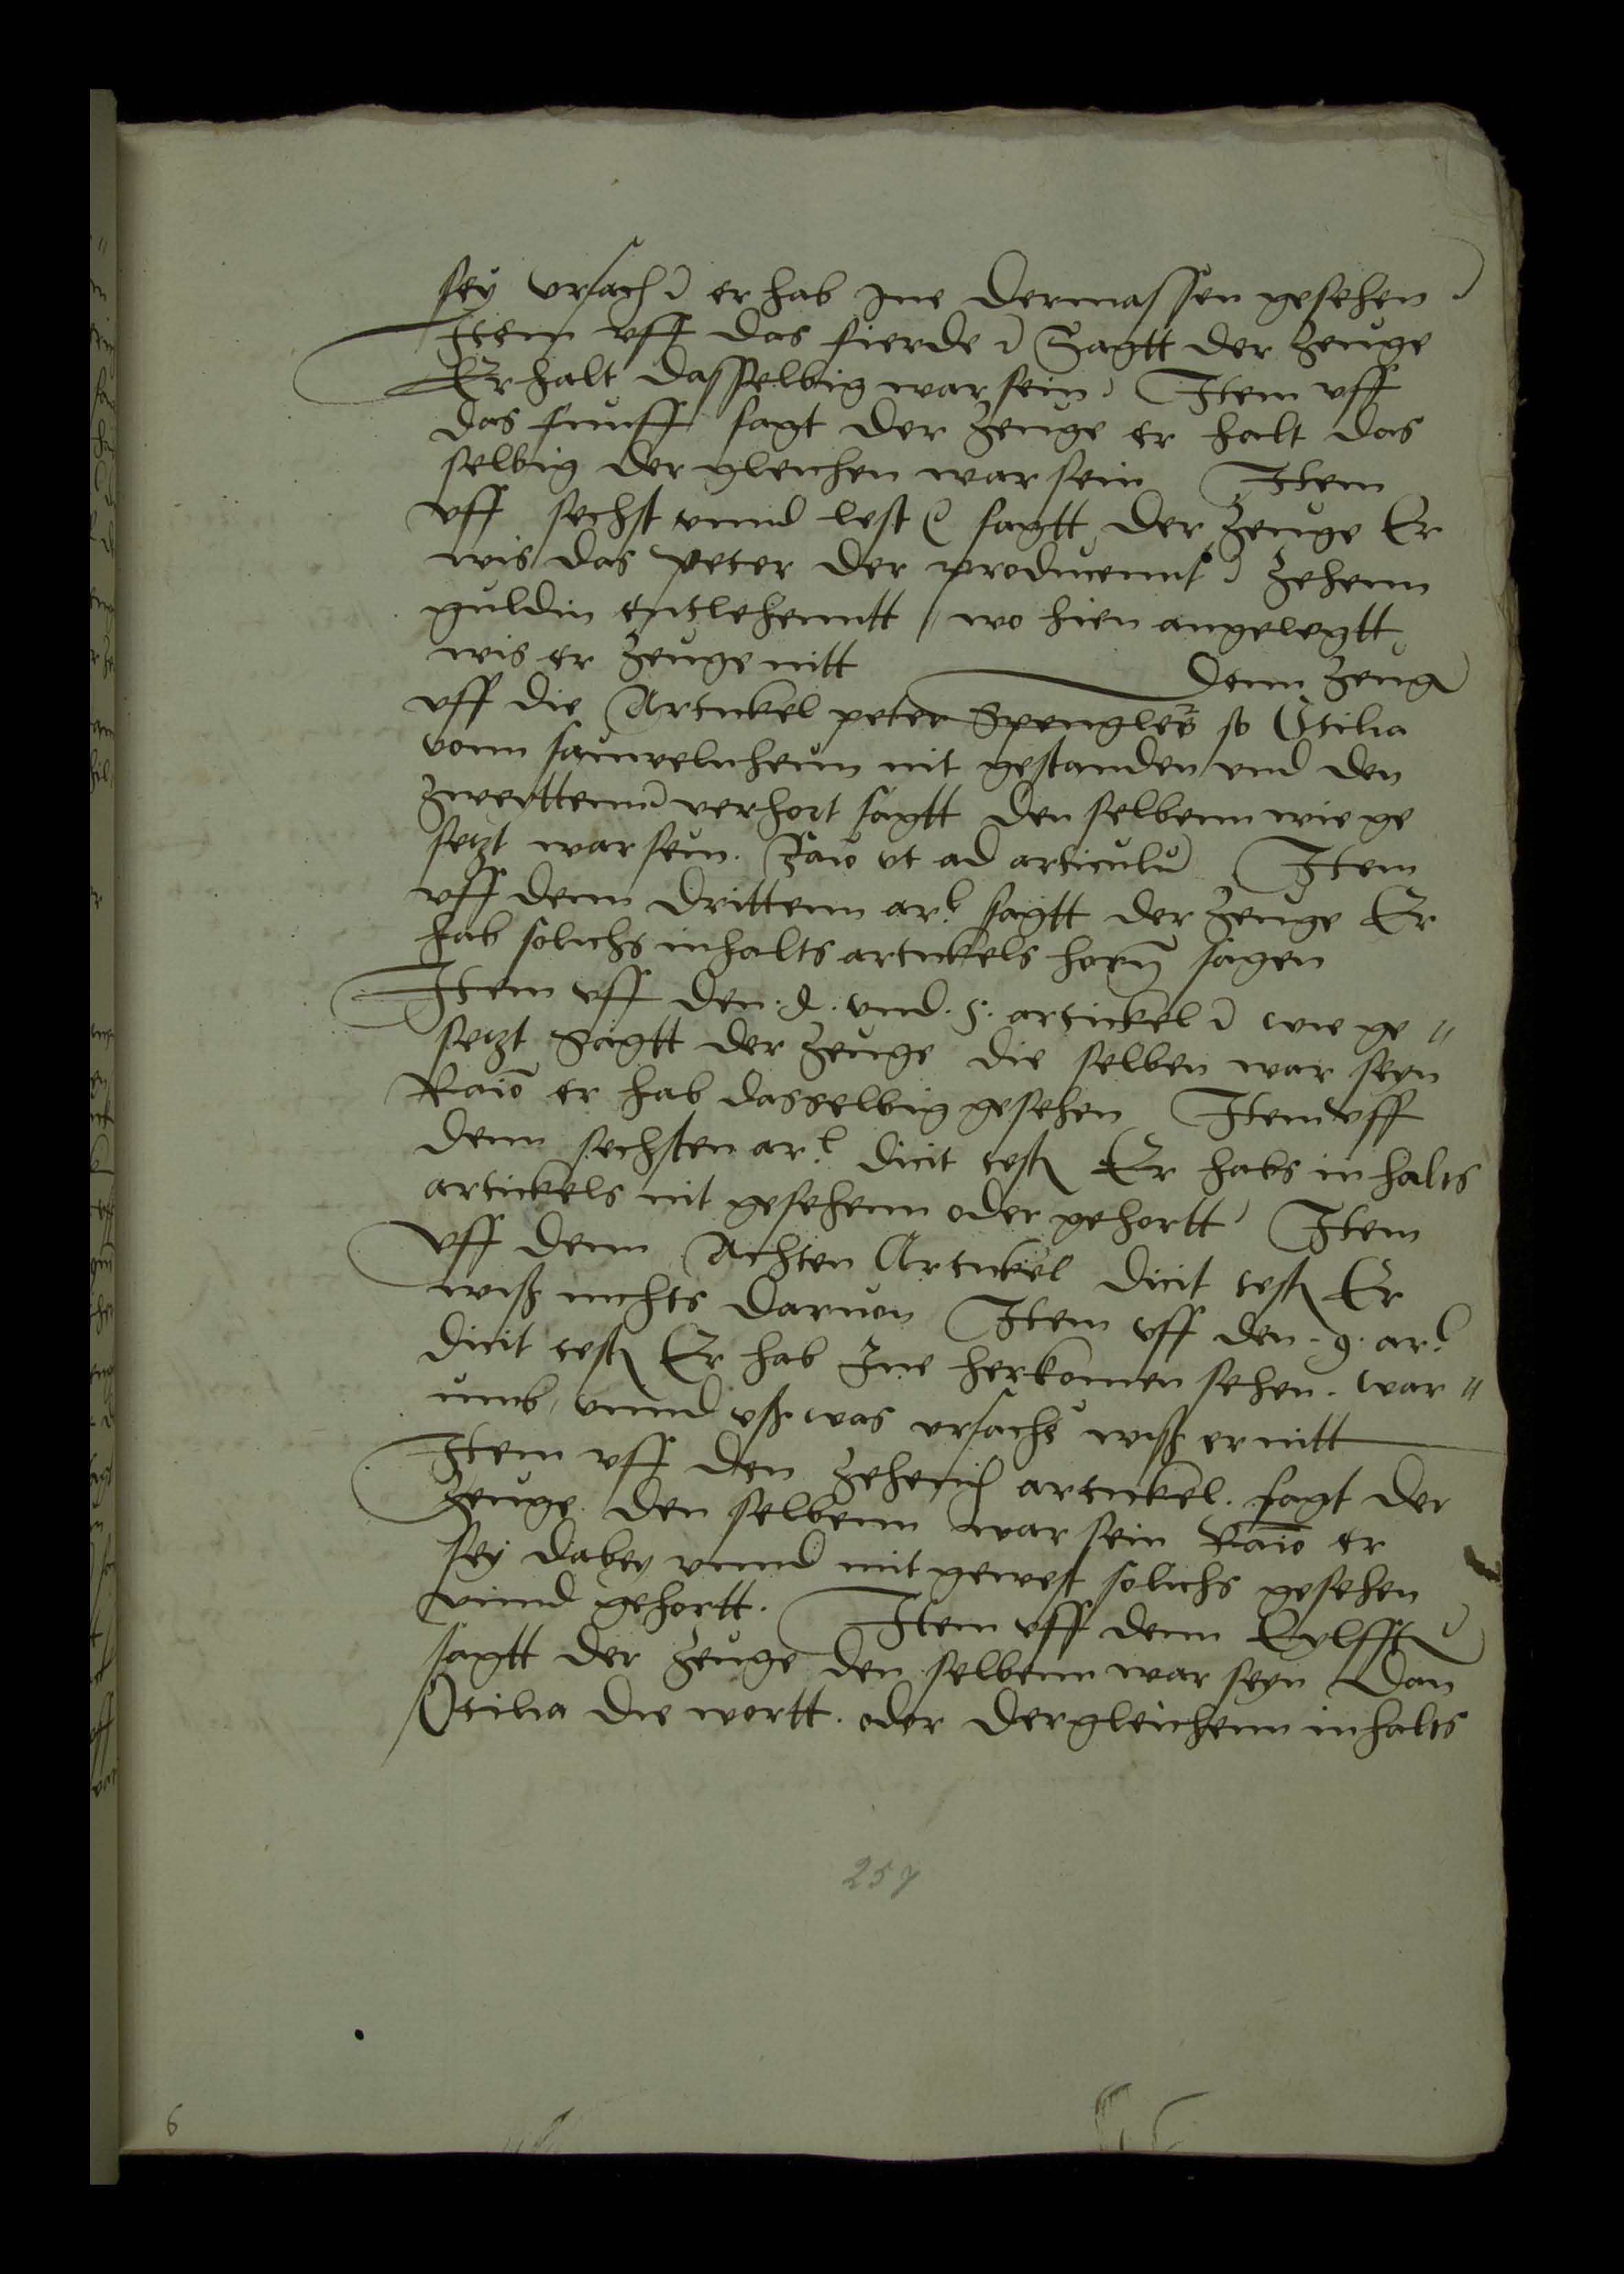 sey vrsach er hab jne dermassen gesehen
Item vff das fierde Sagtt der Zeuge
Er halt dasselbig war sein Item vff
das funff sagt der Zeuge er halt das
selbig der gleichen war sein Item
vff sechst vnnd lest sagtt der Zeuge Er
wis das peter der producennt zehenn
guldin entlehenntt wo hien angelegtt
wis er Zeuge nitt
Denn Zeug
vff die Artickel peter Spenglers so Otilia
vonn sauwelnheim nit gestanden vnd den
zweyttenn verhort sagtt den selbenn wie ge
setzt war sein. Racio vt ad articulu Item
vff denn drittenn ar. sagtt der Zeuge Er
hab solichs inhalts artickels horen sagen
Item vff den .4. vnd .5. artickel wie ge"
setzt Sagtt der Zeuge die selben war seyn
Racio er hab dasselbig gesehen Item vff
denn sechsten ar. dicit test Er habs inhalts
artickels nit gesehenn oder gehortt Item
vff denn Achten Artickel dicit test Er
wiß nichts daruon Item vff den .9. ar.
dicit test Er hab Ine herkomen sehen. war"
umb, vnnd vß was vrsachs wiß er nitt
Item vff den zehent artickel. sagt der
Zeuge. den selbenn war sein Racio er
sey dabey vnnd mit gewest solichs gesehen
vnnd gehortt. Item vff denn Eylfft
sagtt der Zeuge den selbenn war seyn dan
Otilia die wortt. oder dergleichenn inhalts
257
6